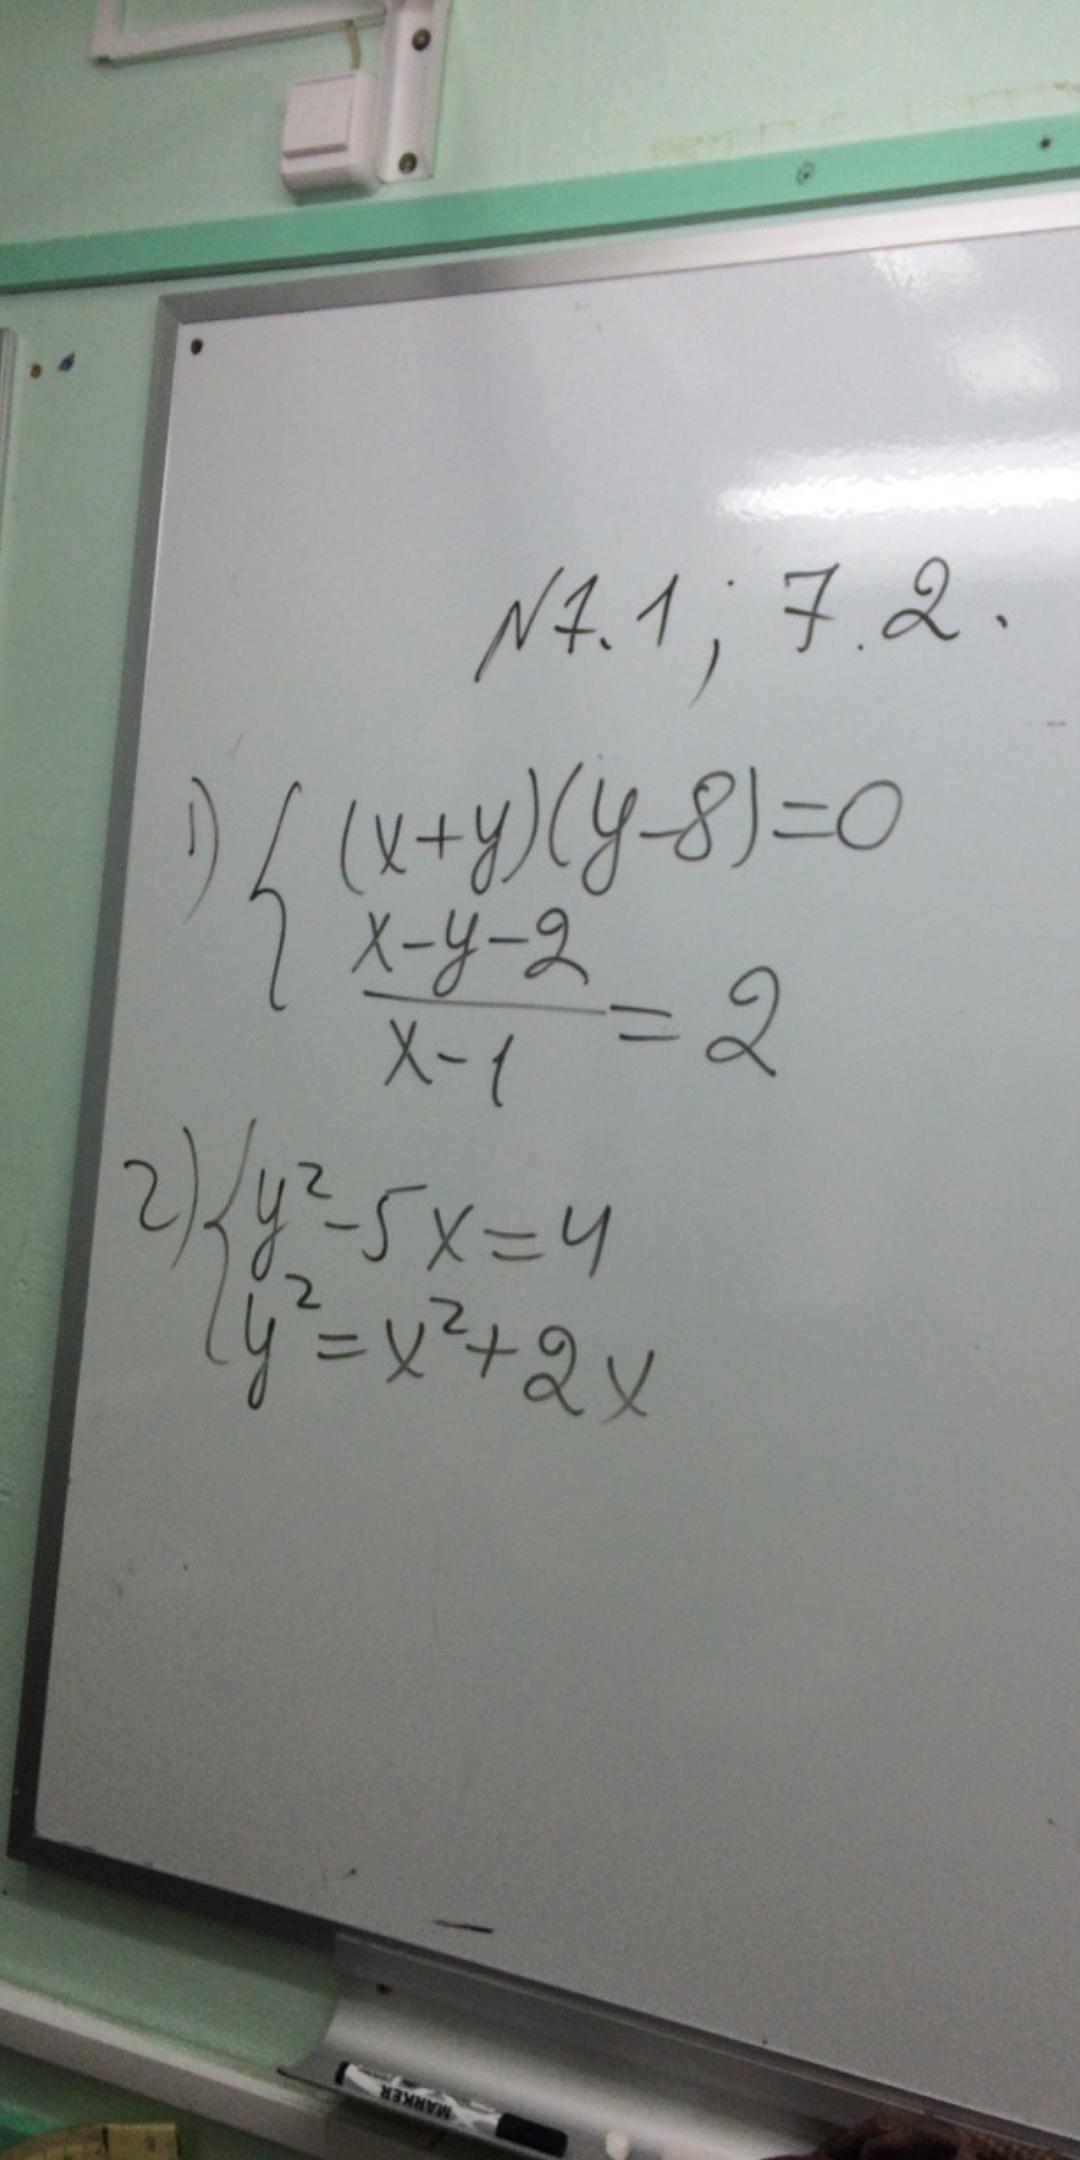 N7.1; 7.2.
1) { (x+y)(y-8)=0
x-y-2
x-1 = 2
2) { y²-5x=4
y²=x²+2x
MARKER